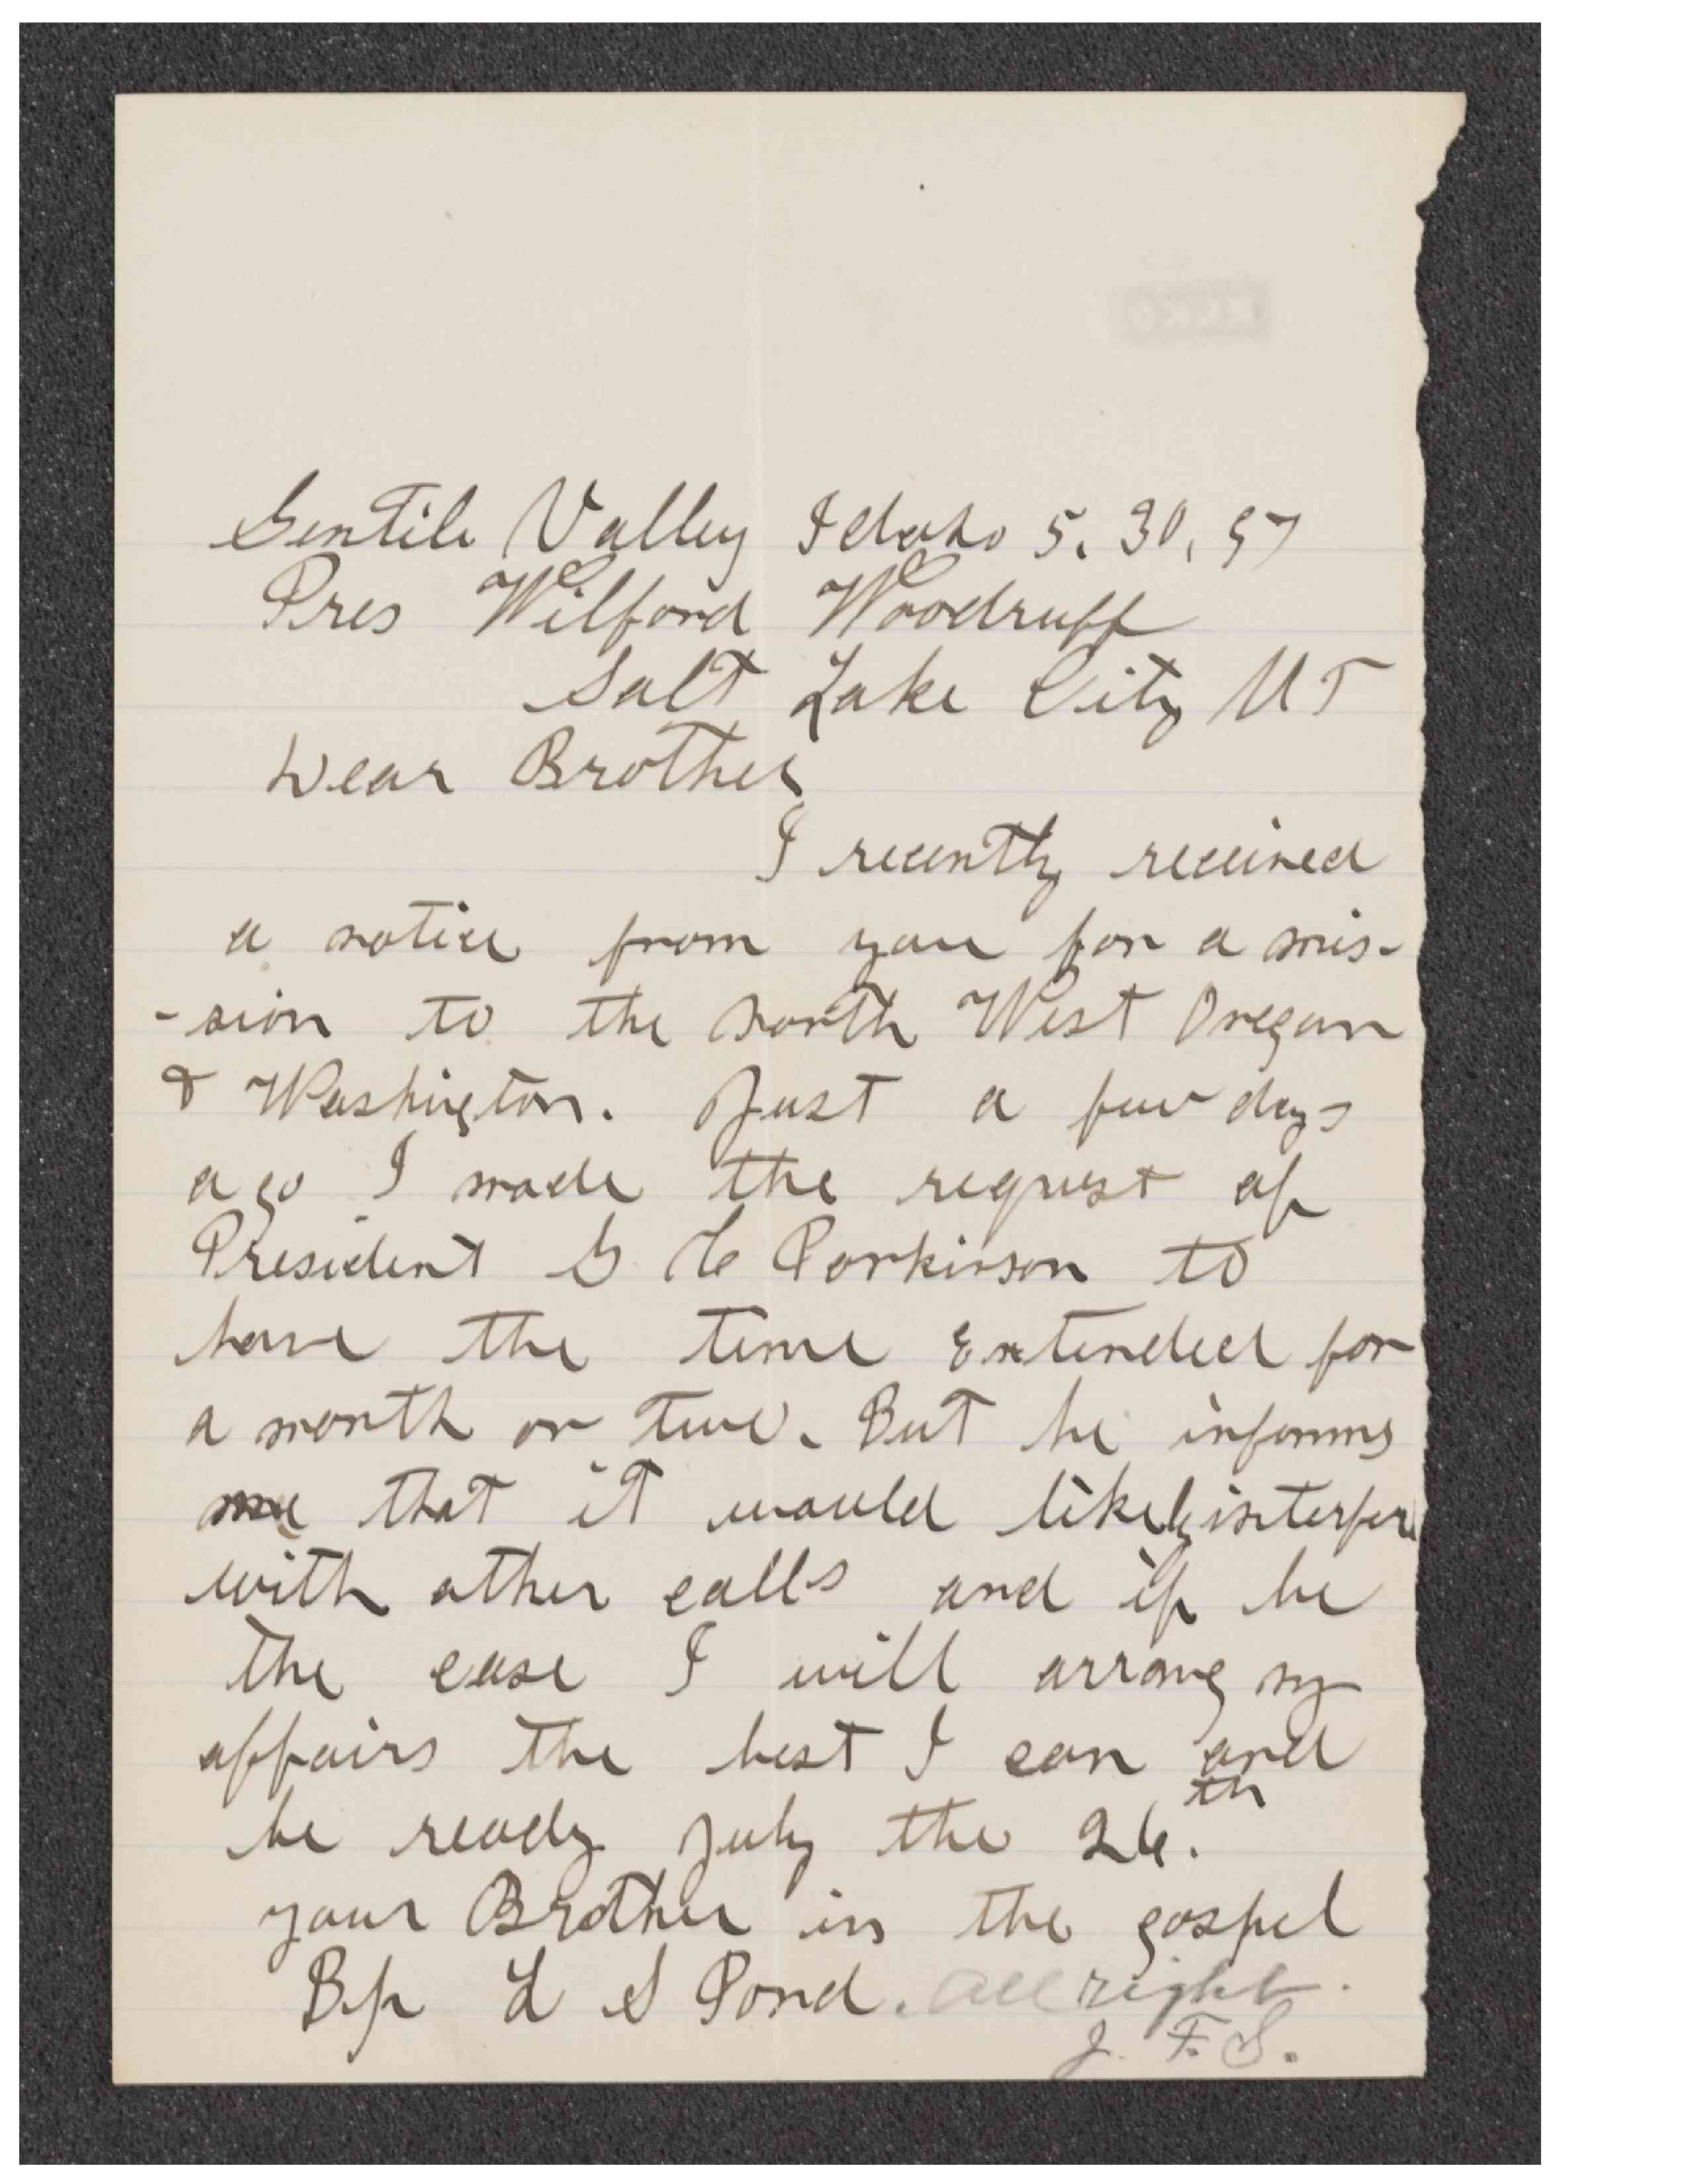 Gentile Valley Idaho 5. 30, 97
Pres Wilford Woodruff
Salt Lake City UT
Dear Brother
I recently received
a notice from you for a mis-
-sion to the North West Oregon
& Washington. Just a few days
ago I made the request of
President G C Parkinson to
have the time Extended for
a month or two. But he informs
me that it would likely interfere
with other calls and if be
the case I will arrang my
affairs the best I can and
be ready July the 26.th
your Brother in the gospel
Bp L S Pond. All right.
J. F. S.